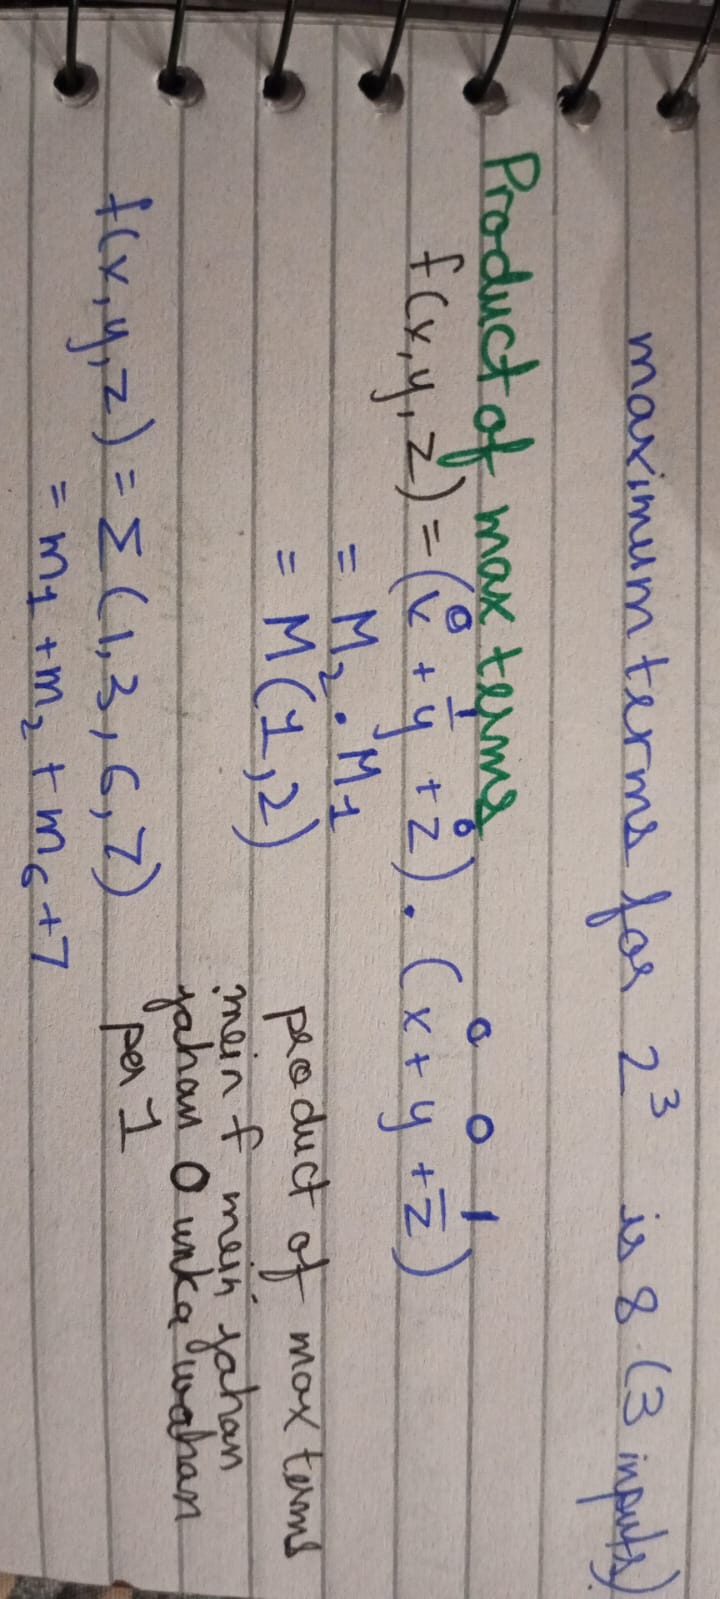 maximum terms for 2³ is 8 (3 inputs)
Product of max terms
0 1 0 0 0 1
f(x,y,z) = (x + y̅ + z) . (x + y + z̅)
= M₂ . M₁
= M(1,2)
product of max terms
mein f mein jahan
jahan 0 unka wahan
per 1
f(x,y,z) = Σ(1,3,6,7)
= m₁ + m₂ + m₆ + 7